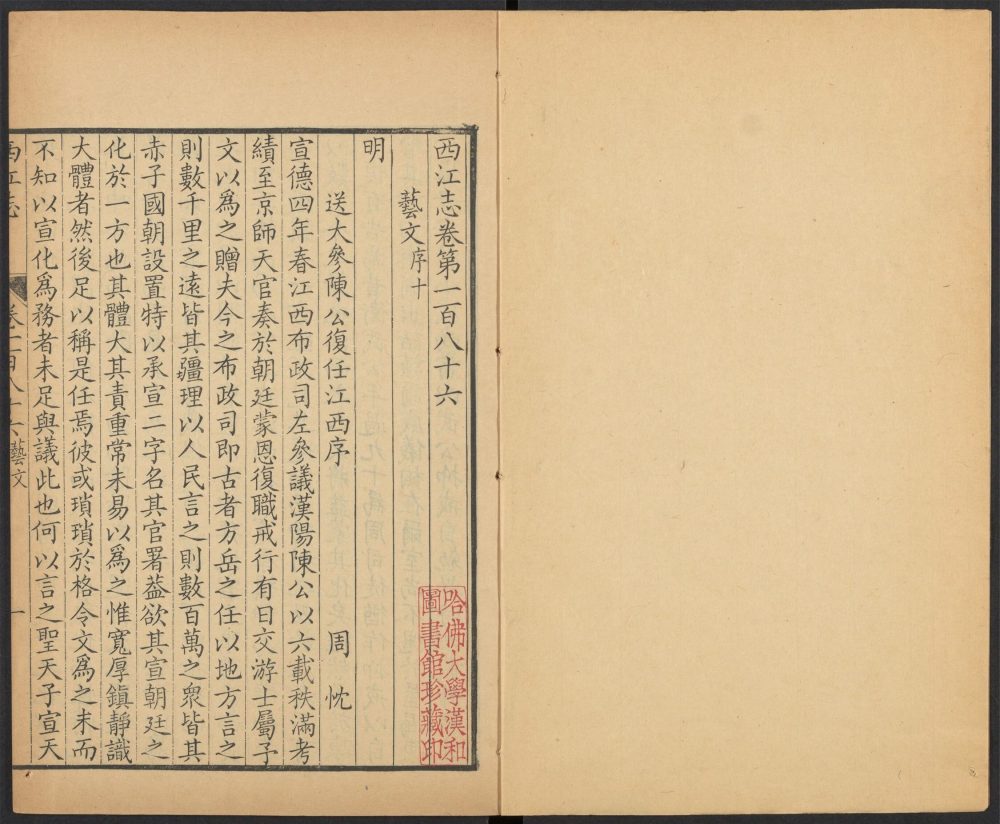 西江志卷第一百八十六
藝文序十
明
送大參陳公復任江西序 周忱
宣德四年春江西布政司左參議漢陽陳公以六載秩滿考
績至京師天官奏於朝廷蒙恩復職戒行有日交游士屬予
文以爲之贈夫今之布政司即古者方岳之任以地方言之
則數千里之遠皆其疆理以人民言之則數百萬之衆皆其
赤子國朝設置特以承宣二字名其官署葢欲其宣朝廷之
化於一方也其體大其責重常未易以爲之惟寬厚鎭靜識
大體者然後足以稱是任焉彼或瑣瑣於格令文爲之末而
不知以宣化爲務者未足與議此也何以言之聖天子宣天
西江志 卷一百八十六藝文 一
哈佛大學漢和
圖書館珍藏印